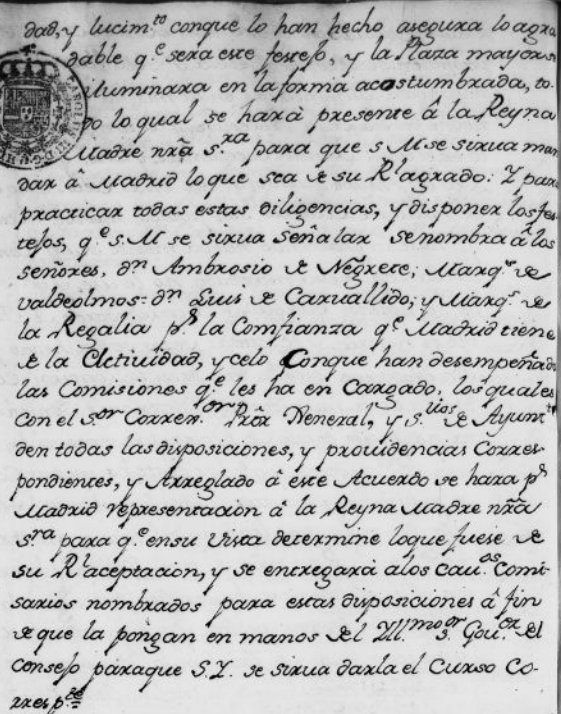 dad, y lucim.to conque lo han hecho asegura lo agra
dable q.e sera este festejo, y la Plaza mayor se
iluminara en la forma acostumbrada, to-
do lo qual se hará presente â la Reyna
Madre nrã s.ra para que s M se sirva man
dar â Madrid lo que sea de su Rl agrado: Y para
practicar todas estas diligencias, y disponer los fes
tejos, q.e s. M se sirva señalar se nombra â los
señores, dn Ambrosio de Negrete, Marq.s de
valdeolmos= dn Luis de Carvallido, y Marq.s de
la Regalia p.r la Comfianza q.e Madrid tiene
de la Actividad, y celo Conque han desempeñado
las Comisiones q.e les ha en Cargado, los quales
Con el s.or Correx.or Prõr General, y s.rios de Ayunt.to
den todas las disposiciones, y providencias Corres
pondientes, y Arreglado â este Acuerdo se hara p.r
Madrid representacion â la Reyna Madre nrã
s.ra para q.e ensu Vista determine loque fuese de
su Rl aceptacion, y se entregará alos cav.os Comi
sarios nombrados para estas disposiciones â fin
de que la pongan en manos del Yll.mo s.or Gov.or del
Consejo paraque S. Y. se sirva darla el Curso Co-
rresp.te
CAROLUS III D G